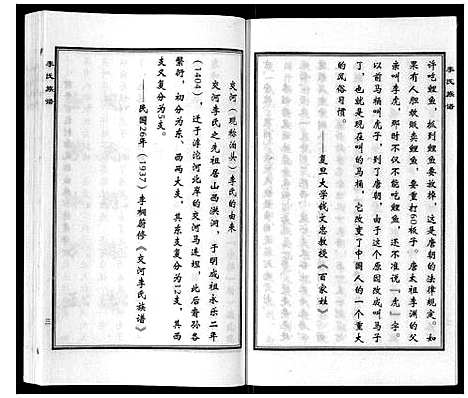 李氏族谱
许吃鲤鱼，抓到鲤鱼要放掉，这是唐朝的法律规定。如
果有人胆敢贩卖鲤鱼，要重打60板子。唐太祖李渊的父
亲叫李虎，那时不仅不能吃鲤鱼，还不准说“虎”字。
以前马桶叫虎子，到了唐朝，由于这个原因改成叫马子
了，也就是现在叫的马桶，它改变了中国人的一个重大
的风俗习惯。
复旦大学钱文忠教授《百家姓》
交河（现称泊头）李氏的由来
交河李氏之先祖居山西洪洞，于明成祖永乐二年
（1404），迁于滹沱河北岸的交河马连坦，此后昝孙各
繁衍，初分为东、西两大支，其东支复分为12支，其西
支又复分为5支。
——民国26年（1937）李桐蔚修《交河李氏族谱》
李氏族谱
三